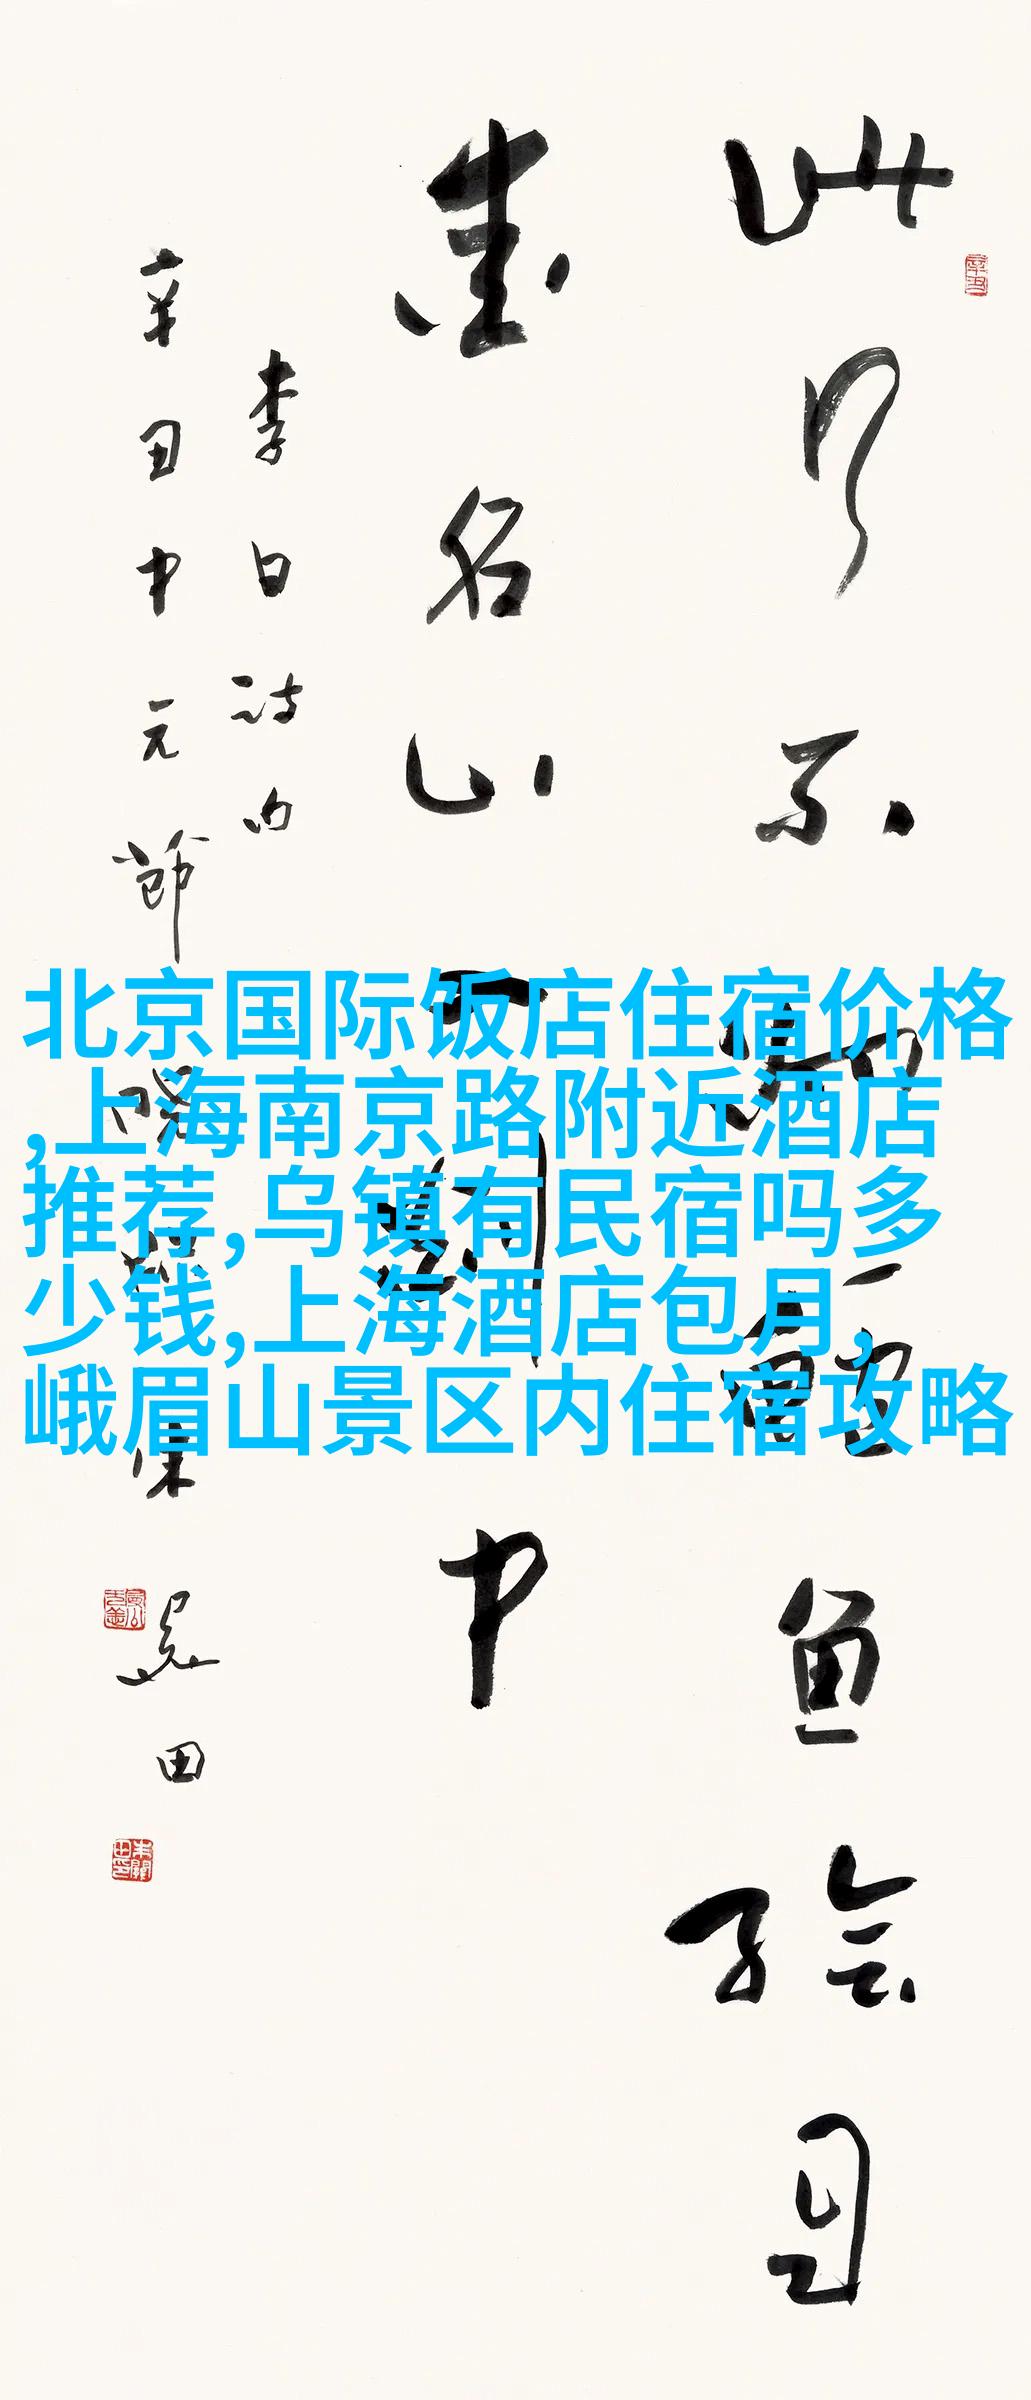 此行不为鲈鱼鲙自
爱名山入剡中
李白诗句
辛丑中元节
北京国际饭店住宿价格
,上海南京路附近酒店
推荐,乌镇有民宿吗多
少钱,上海酒店包月,
峨眉山景区内住宿攻略